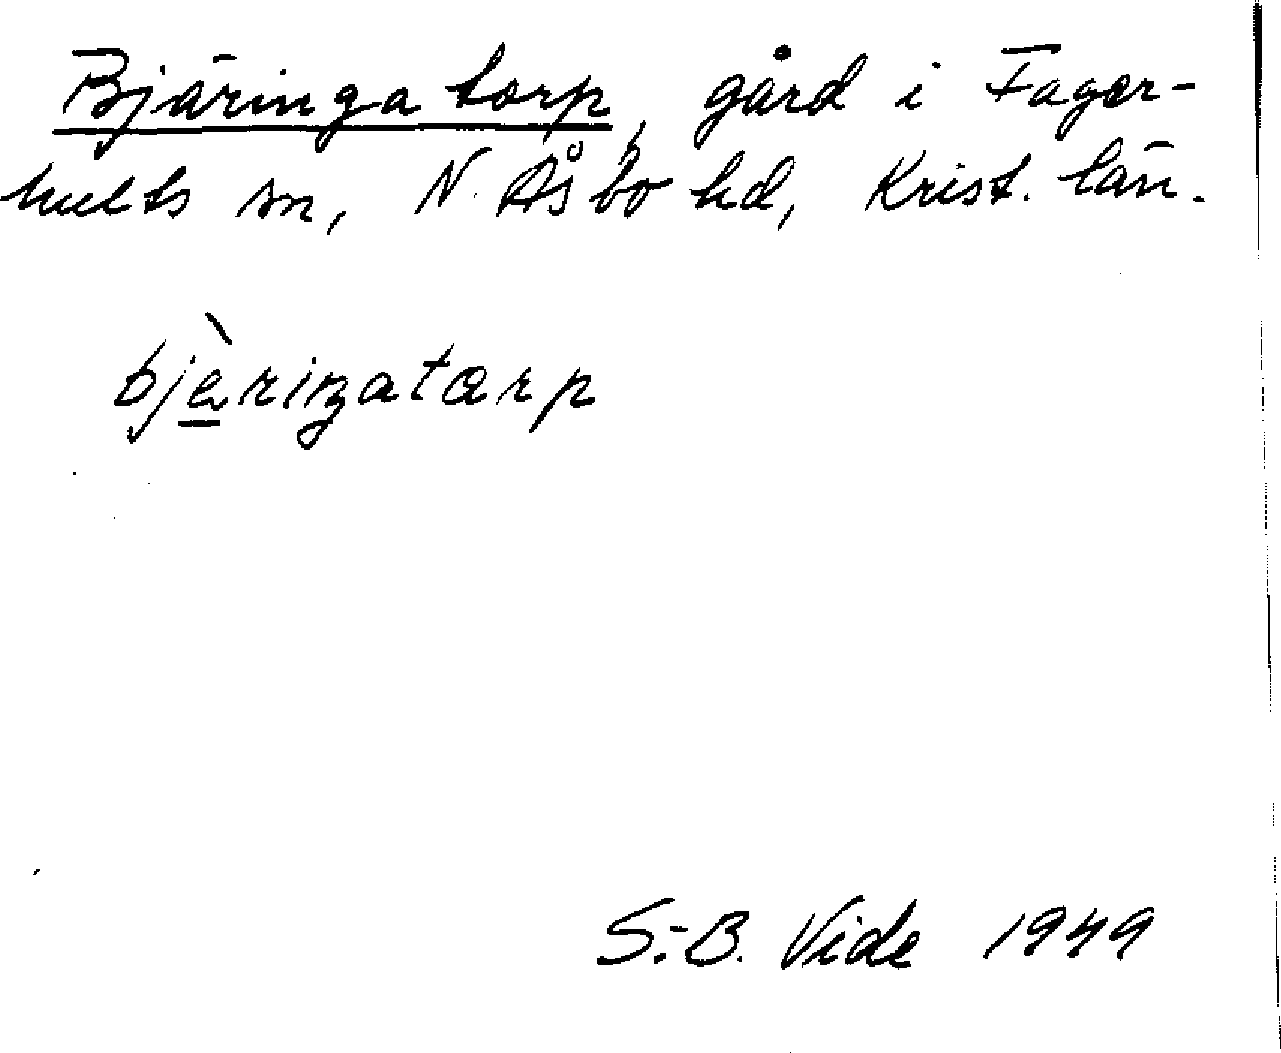 Bjäringatorp, gård i Fager-
hults sn, N. Åsbo hd, Krist. län.
bjæ̠̀riŋatɑrp
S.-B. Vide 1949